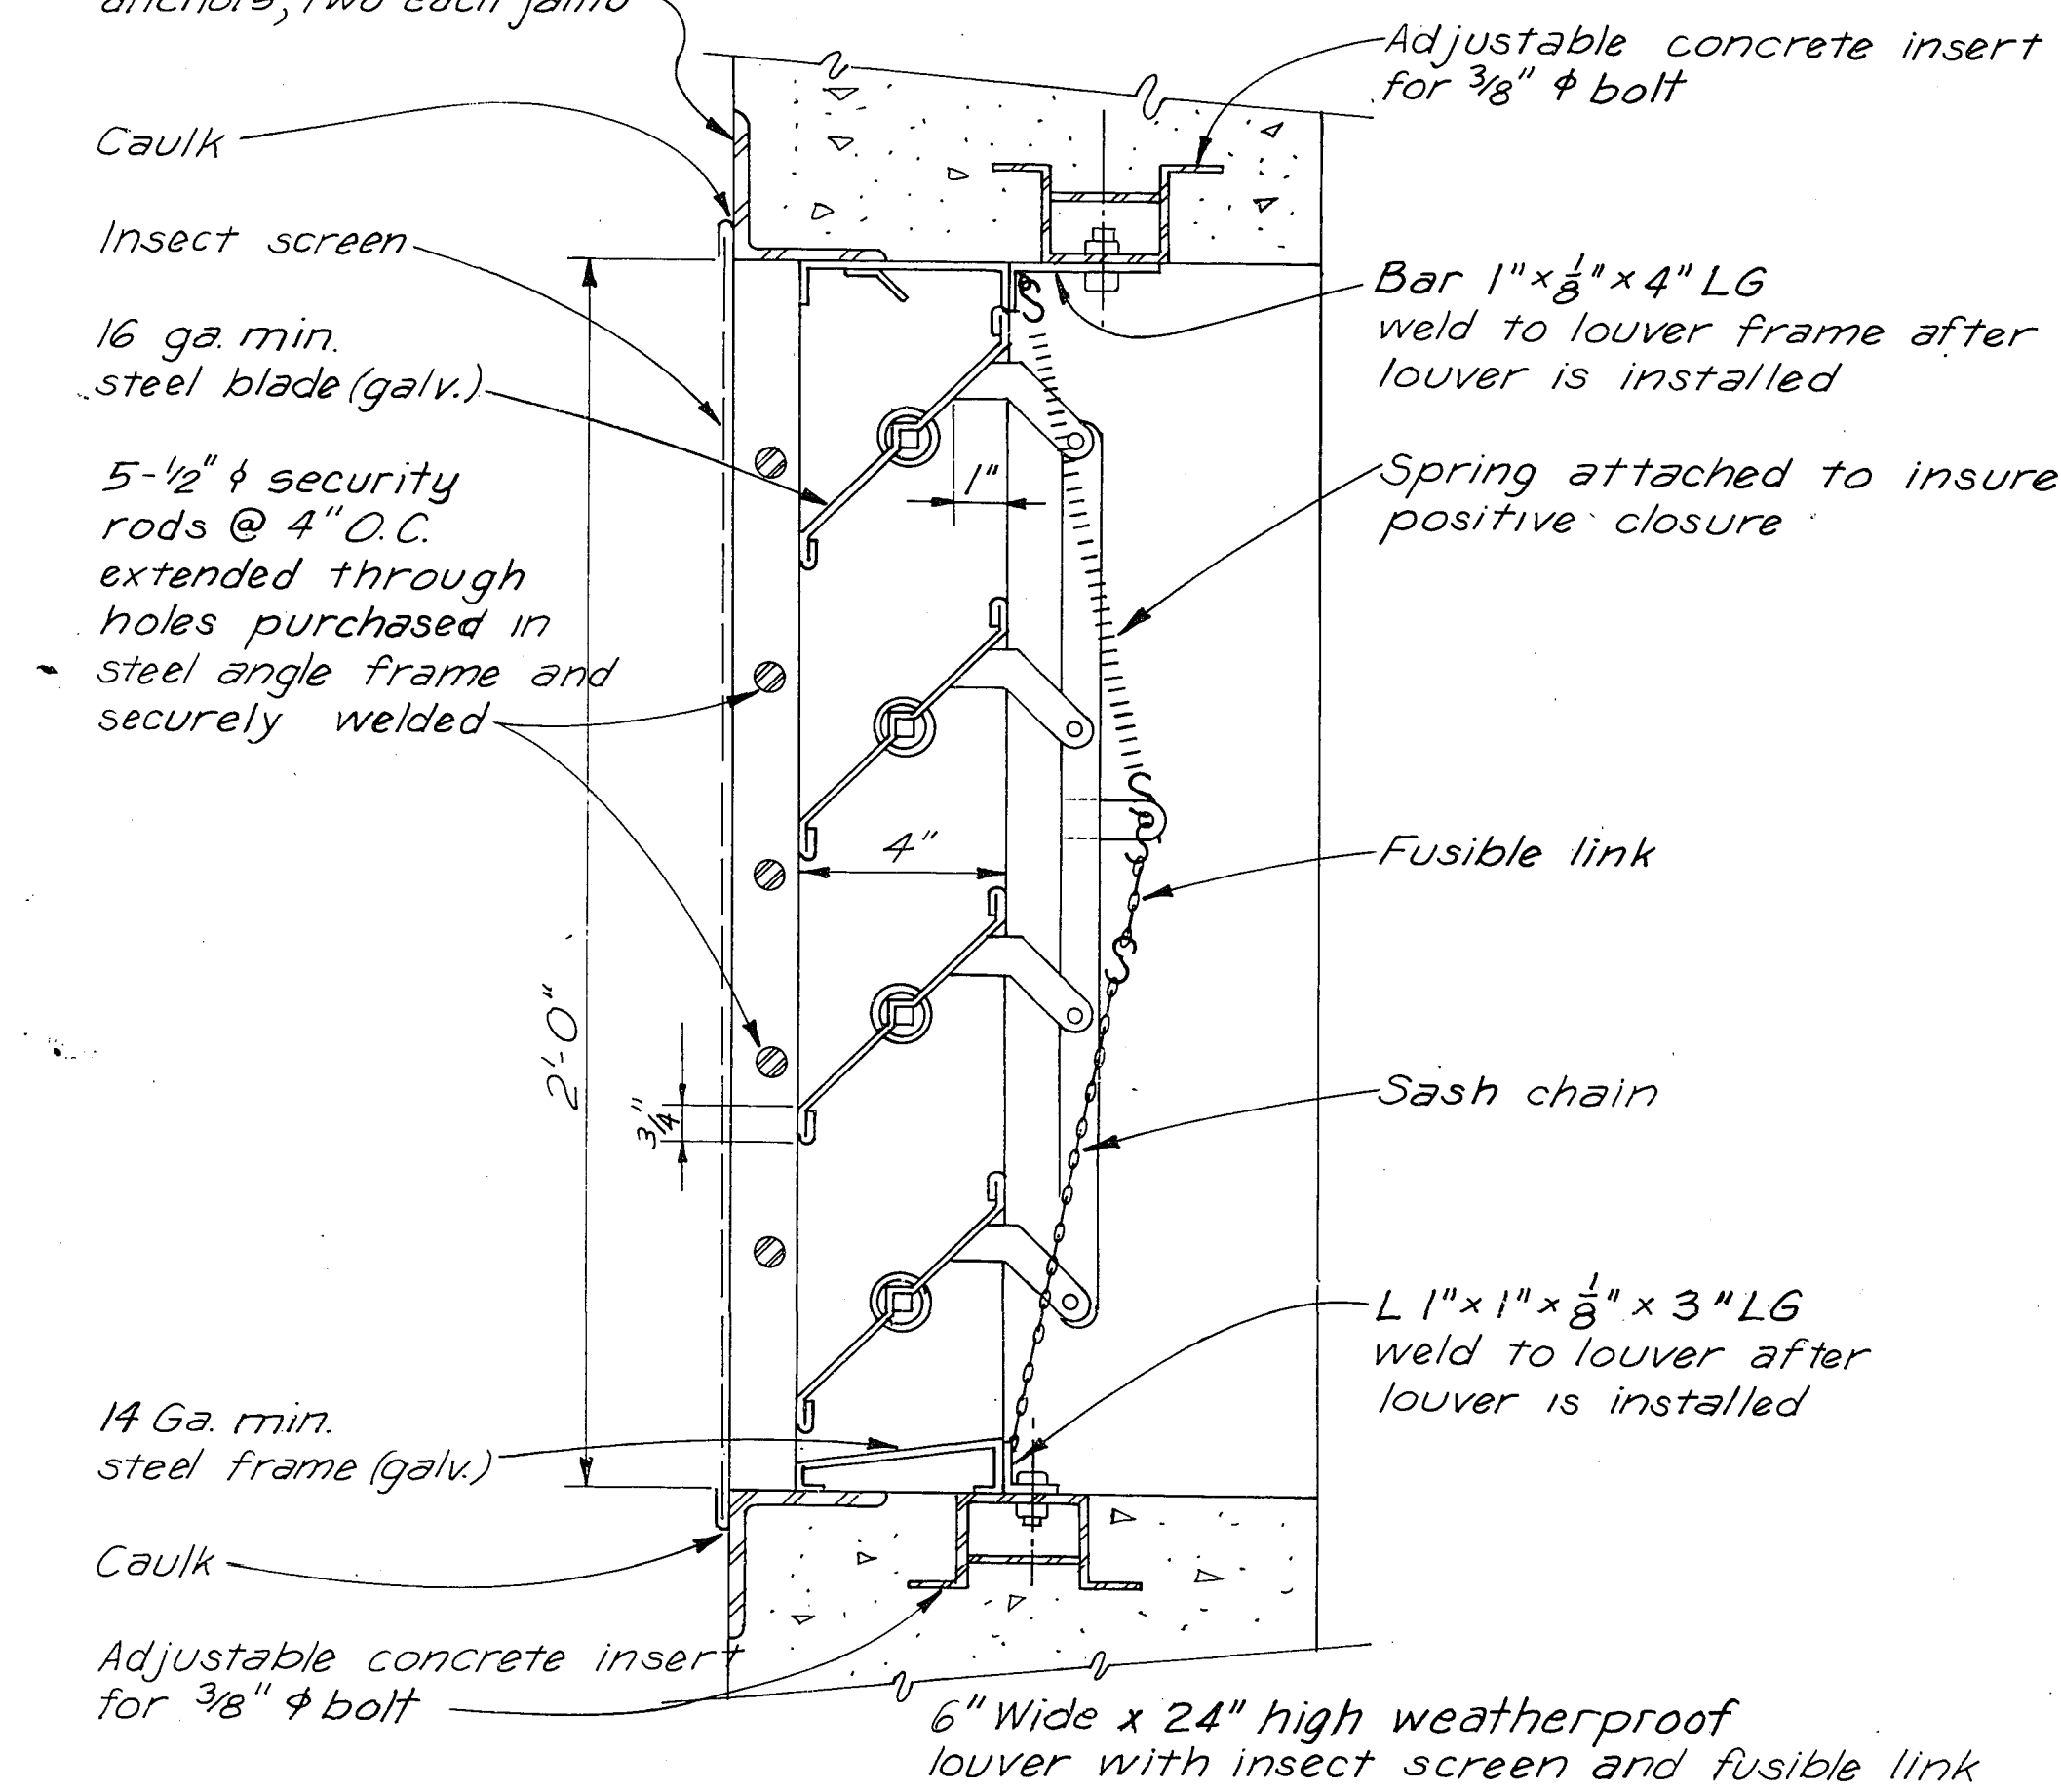 anchors, two each jamb
Caulk
Insect screen
16 ga. min.
steel blade (galv.)
5-1/2" ϕ security
rods @ 4" O.C.
extended through
holes purchased in
steel angle frame and
securely welded
2'-0"
3/4"
14 Ga. min.
steel frame (galv.)
Caulk
Adjustable concrete insert
for 3/8" ϕ bolt
1"
4"
Adjustable concrete insert
for 3/8" ϕ bolt
Bar 1" x 1/8" x 4" LG
weld to louver frame after
louver is installed
Spring attached to insure
positive closure
Fusible link
Sash chain
L 1" x 1" x 1/8" x 3" LG
weld to louver after
louver is installed
6" Wide x 24" high weatherproof
louver with insect screen and fusible link